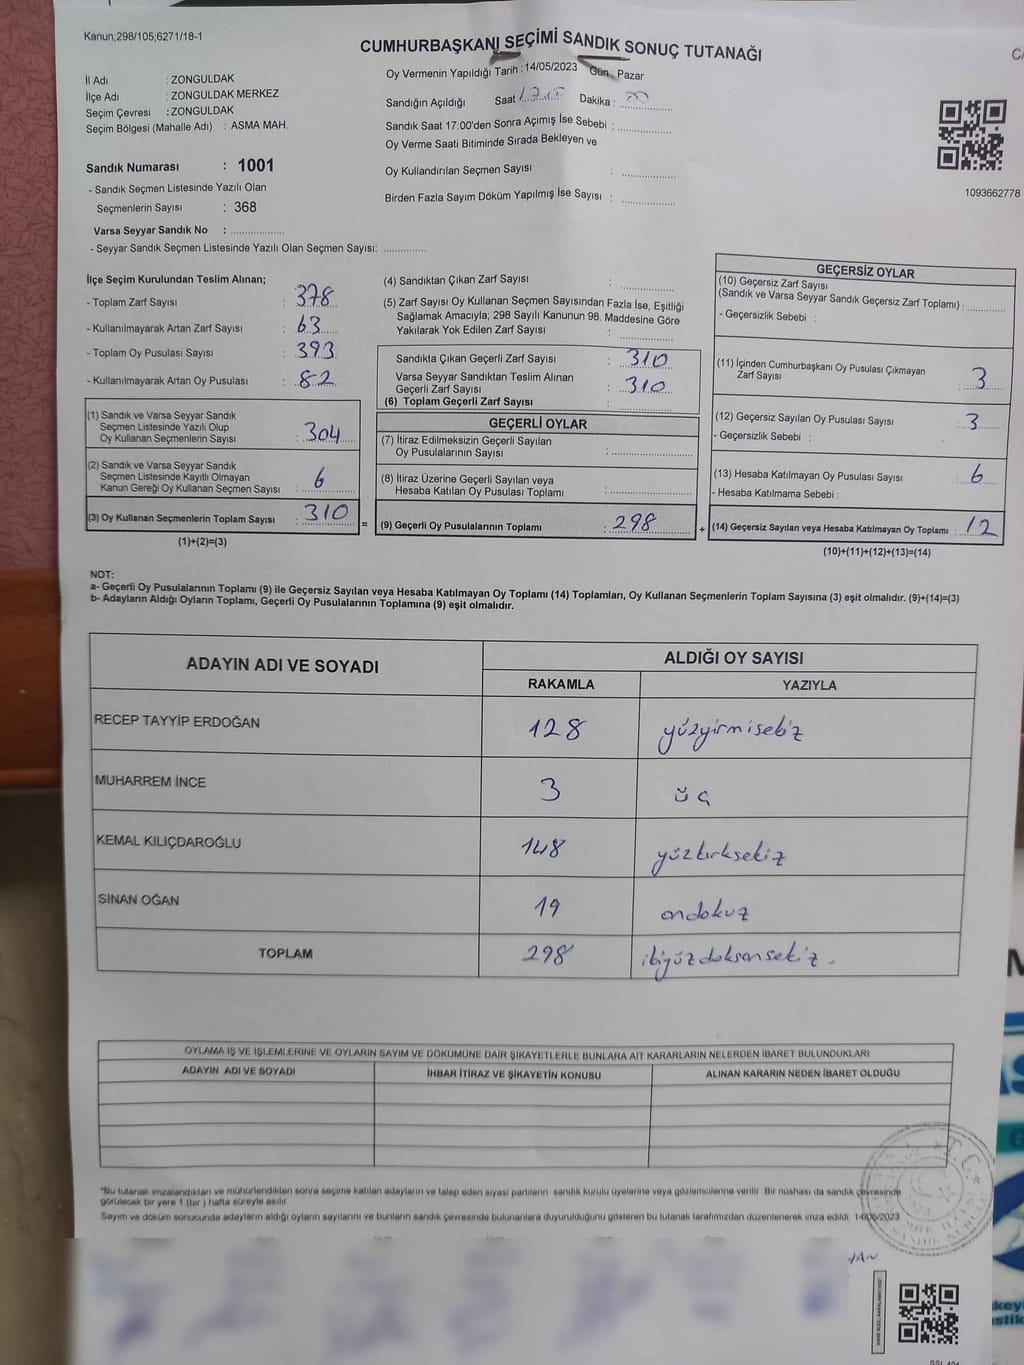 Kanun;298/105;6271/18-1
CUMHURBAŞKANI SEÇİMİ SANDIK SONUÇ TUTANAĞI
İl Adı : ZONGULDAK
İlçe Adı : ZONGULDAK MERKEZ
Seçim Çevresi : ZONGULDAK
Seçim Bölgesi (Mahalle Adı) : ASMA MAH.
Sandık Numarası : 1001
- Sandık Seçmen Listesinde Yazılı Olan
Seçmenlerin Sayısı : 368
Varsa Seyyar Sandık No :
- Seyyar Sandık Seçmen Listesinde Yazılı Olan Seçmen Sayısı:
Oy Vermenin Yapıldığı Tarih : 14/05/2023 Gün : Pazar
Sandığın Açıldığı Saat Dakika :
Sandık Saat 17:00'den Sonra Açımış İse Sebebi :
Oy Verme Saati Bitiminde Sırada Bekleyen ve
Oy Kullandırılan Seçmen Sayısı :
Birden Fazla Sayım Döküm Yapılmış İse Sayısı :
1093662778
İlçe Seçim Kurulundan Teslim Alınan;
- Toplam Zarf Sayısı : 378
- Kullanılmayarak Artan Zarf Sayısı : 63
- Toplam Oy Pusulası Sayısı : 393
- Kullanılmayarak Artan Oy Pusulası : 82
(1) Sandık ve Varsa Seyyar Sandık
Seçmen Listesinde Yazılı Olup
Oy Kullanan Seçmenlerin Sayısı : 304
(2) Sandık ve Varsa Seyyar Sandık
Seçmen Listesinde Kayıtlı Olmayan
Kanun Gereği Oy Kullanan Seçmen Sayısı : 6
(3) Oy Kullanan Seçmenlerin Toplam Sayısı : 310 =
(1)+(2)=(3)
(4) Sandıktan Çıkan Zarf Sayısı :
(5) Zarf Sayısı Oy Kullanan Seçmen Sayısından Fazla İse, Eşitliği
Sağlamak Amacıyla; 298 Sayılı Kanunun 98. Maddesine Göre
Yakılarak Yok Edilen Zarf Sayısı :
Sandıkta Çıkan Geçerli Zarf Sayısı : 310
Varsa Seyyar Sandıktan Teslim Alınan
Geçerli Zarf Sayısı : 310
(6) Toplam Geçerli Zarf Sayısı :
GEÇERLİ OYLAR
(7) İtiraz Edilmeksizin Geçerli Sayılan
Oy Pusulalarının Sayısı :
(8) İtiraz Üzerine Geçerli Sayılan veya
Hesaba Katılan Oy Pusulası Toplamı :
(9) Geçerli Oy Pusulalarının Toplamı : 298 +
GEÇERSİZ OYLAR
(10) Geçersiz Zarf Sayısı
(Sandık ve Varsa Seyyar Sandık Geçersiz Zarf Toplamı) :
- Geçersizlik Sebebi :
(11) İçinden Cumhurbaşkanı Oy Pusulası Çıkmayan
Zarf Sayısı : 3
(12) Geçersiz Sayılan Oy Pusulası Sayısı : 3
- Geçersizlik Sebebi :
(13) Hesaba Katılmayan Oy Pusulası Sayısı : 6
- Hesaba Katılmama Sebebi :
(14) Geçersiz Sayılan veya Hesaba Katılmayan Oy Toplamı : 12
(10)+(11)+(12)+(13)=(14)
NOT:
a- Geçerli Oy Pusulalarının Toplamı (9) ile Geçersiz Sayılan veya Hesaba Katılmayan Oy Toplamı (14) Toplamları, Oy Kullanan Seçmenlerin Toplam Sayısına (3) eşit olmalıdır. (9)+(14)=(3)
b- Adayların Aldığı Oyların Toplamı, Geçerli Oy Pusulalarının Toplamına (9) eşit olmalıdır.
ADAYIN ADI VE SOYADI ALDIĞI OY SAYISI
RAKAMLA YAZIYLA
RECEP TAYYİP ERDOĞAN 128 yüzyirmisekiz
MUHARREM İNCE 3 üç
KEMAL KILIÇDAROĞLU 148 yüzkırksekiz
SİNAN OĞAN 19 ondokuz
TOPLAM 298 ikiyüzdoksansekiz
OYLAMA İŞ VE İŞLEMLERİNE VE OYLARIN SAYIM VE DÖKÜMÜNE DAİR ŞİKAYETLERLE BUNLARA AİT KARARLARIN NELERDEN İBARET BULUNDUKLARI
ADAYIN ADI VE SOYADI İHBAR İTİRAZ VE ŞİKAYETİN KONUSU ALINAN KARARIN NEDEN İBARET OLDUĞU
"Bu tutanak imzalandıktan ve mühürlendikten sonra seçime katılan adayların ve talep eden siyasi partilerin sandık kurulu üyelerine veya gözlemcilerine verilir. Bir nüshası da sandık çevresinde
görülecek bir yere 1 (bir) hafta süreyle asılır.
Sayım ve döküm sonucunda adayların aldığı oyların sayılarını ve bunların sandık çevresinde bulunanlara duyurulduğunu gösteren bu tutanak tarafımızdan düzenlenerek imza edildi. 14/05/2023